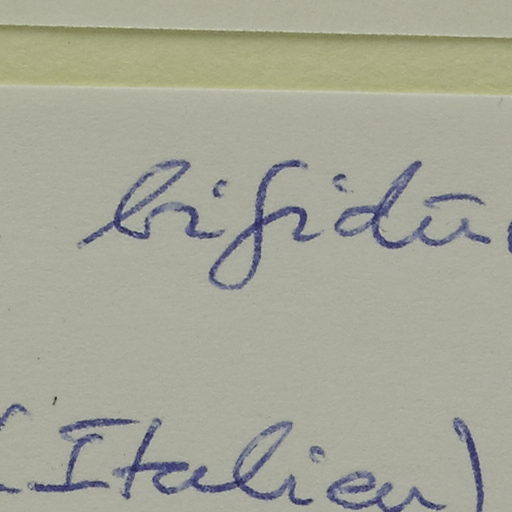 bifidū
(Italien)